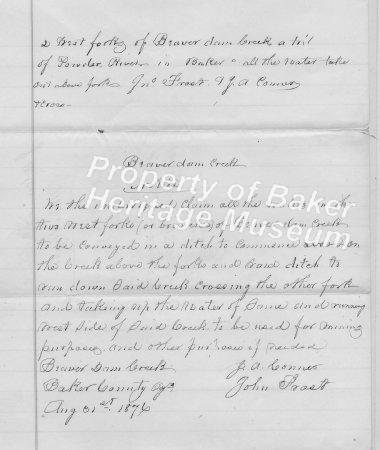 2 West forks of Beaver dam Creek a
of Powder River in Baker all the water
above forks Jno Frost & J A Conner
Beaver dam Creek
Property of Baker
Heritage Museum
We the undersigned Claim all the
two West forks or branches of Beaver dam Creek
to be conveyed in a ditch to Commence on
the Creek above the forks and said ditch to
run down Said Creek crossing the other fork
and taking up the Water of Same and running
West Side of Said Creek to be used for mining
purposes and other purposes if needed
Beaver Dam Creek J. A. Conner
Baker County John Frost
Aug 31st 1876